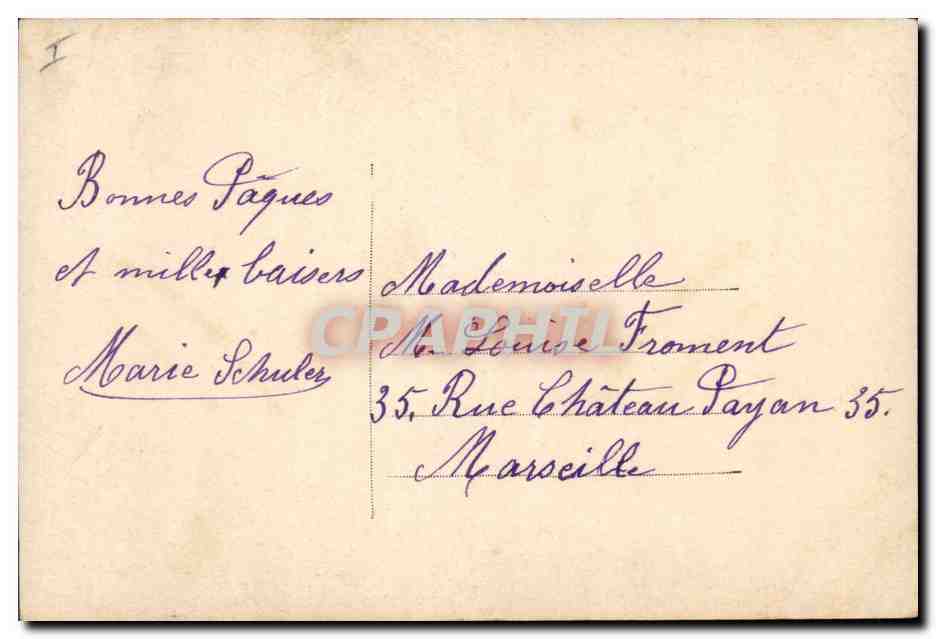 I
Bonnes Pâques
et mille baisers
Marie Schuler
Mademoiselle
M. Louise Froment
35, Rue Château Payan 35.
Marseille
CPARHIL